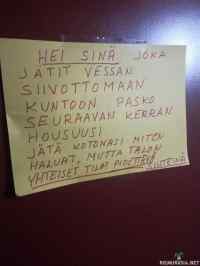 HEI SINÄ JOKA
JÄTIT VESSAN
SIIVOTTOMAAN
KUNTOON PASKO
SEURAAVAN KERRAN
HOUSUUSI
JÄTÄ KOTONASI MITEN
HALUAT, MUTTA TALON
YHTEISET TILAT PIDETTÄVÄ
SIISTEINÄ